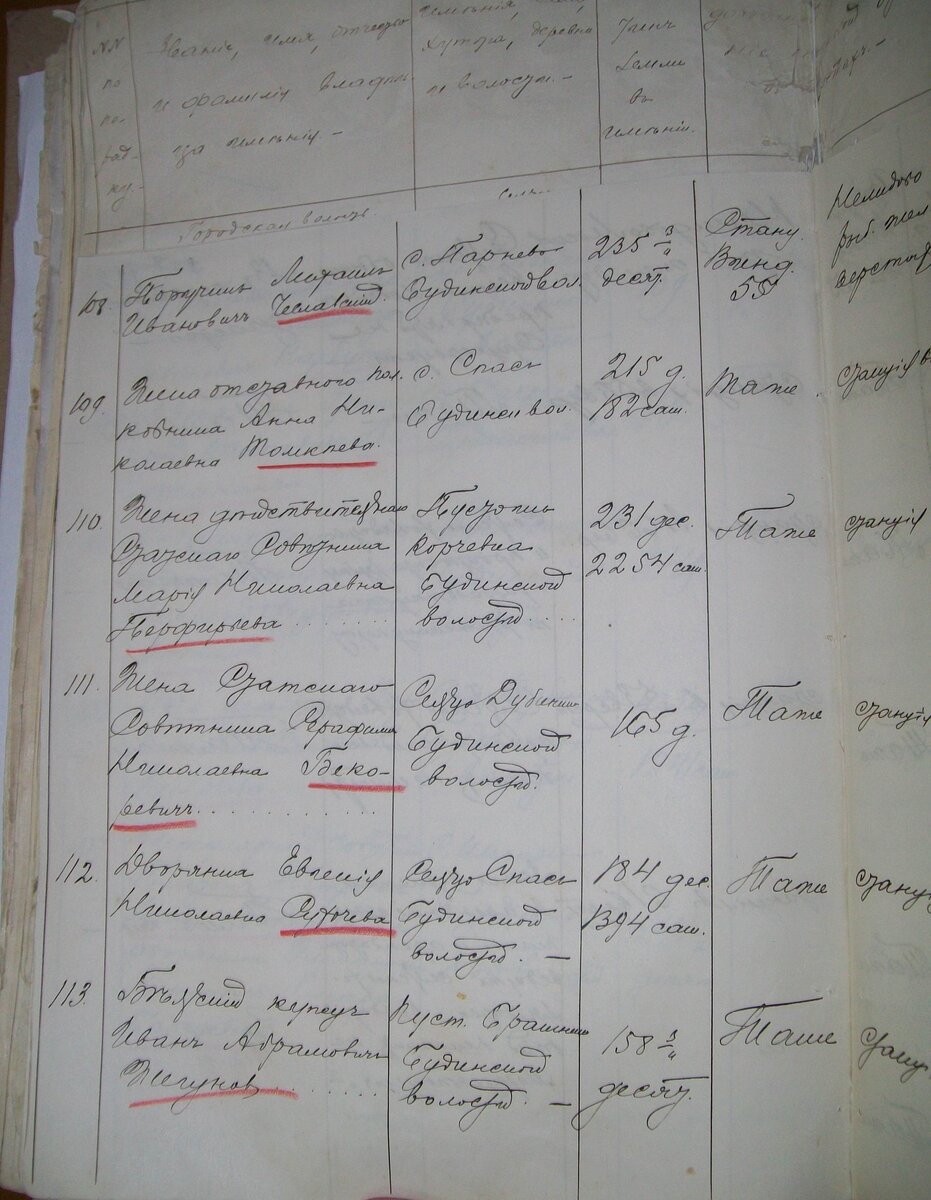 NN по по- ряд- ку.
Званіе, имя, отчество
и фамилія владѣль-
ца имѣнія. -
хутора, деревни
и волости. -
земли
въ
имѣніи.
Городская волость.
108. Поручикъ Михаилъ
Ивановичъ Чеславскій.
с. Парнево
Будинской вол.
235 3/4
десят.
Стану.
55
Нелидово
109. Жена отставного пол-
ковника Анна Ни-
колаевна Томкѣева.
с. Спасъ
Будинск. вол.
215 д.
182 саж.
Таже
станція
110. Жена дѣйствительнаго
Статскаго Совѣтника
Марія Николаевна
Перфирьева
Пустошь
Корчевка
Будинской
волости.
231 дес.
2254 саж.
Таже
станція
111. Жена Статскаго
Совѣтника Серафима
Николаевна Беко-
ревичъ
Сельцо Дубки
Будинской
волости.
165 д.
Таже
станція
112. Дворянка Евгенія
Николаевна
Сельцо Спасъ
Будинской
волости. —
184 дес.
1394 саж.
Таже
113. Бѣльскій купецъ
Иванъ Абрамовичъ
Жегуновъ
Пуст.
Будинской
волости. —
158 3/4
десят.
Таже